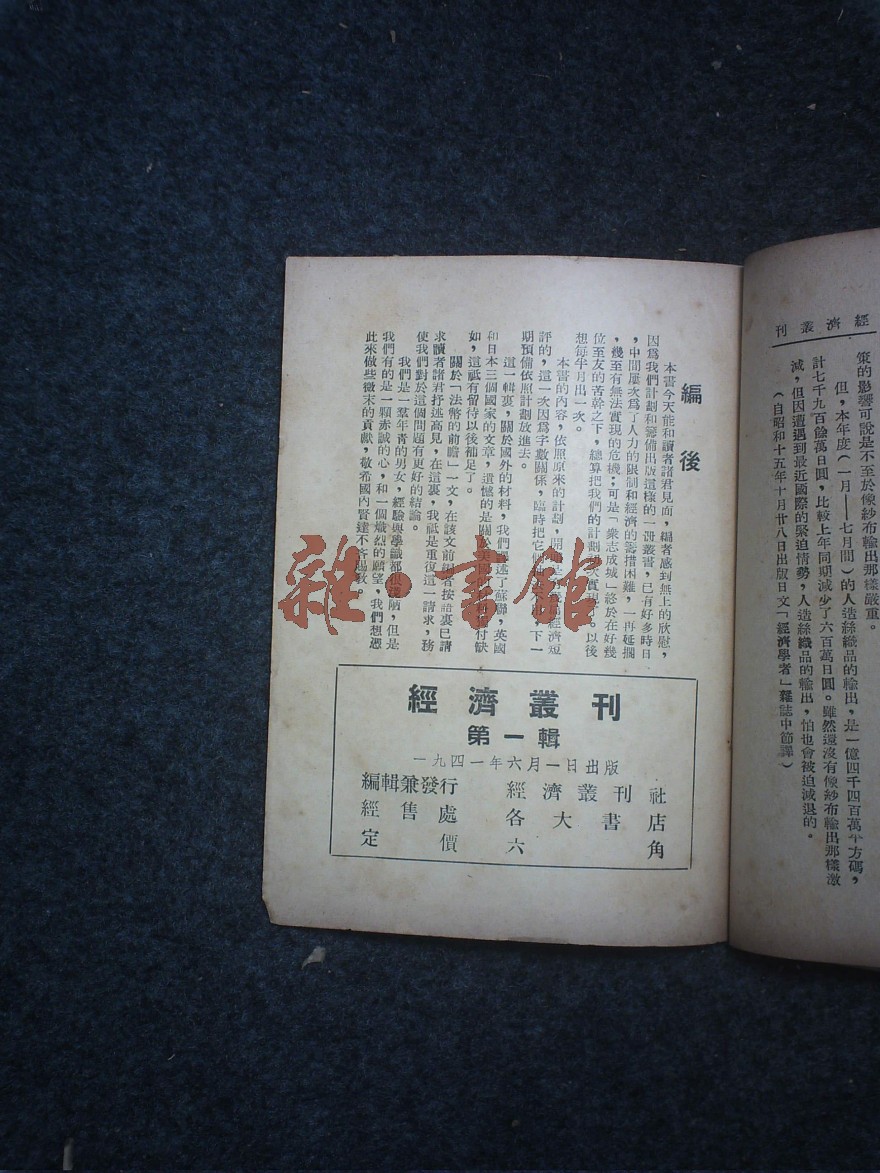 經濟叢刊
策的影響可說是不至於像紗布輸出那樣嚴重。
但,本年度(一月——七月間)的人造絲織品的輸出,是一億四千四百萬平方碼,
計七千九百餘萬日圓,比較上年同期減少了六百萬日圓。雖然還沒有像紗布輸出那樣激
減,但因遭遇到最近國際的緊迫情勢,人造絲織品的輸出,怕也會被迫減退的。
(自昭和十五年十月廿八日出版日文「經濟學者」雜誌中節譯)
編後
本書今天能和讀者諸君見面,編者感到無上的欣慰,
因爲我們計劃和籌備出版這樣的一冊叢書,已有好多時日
,中間屢次爲了人力的限制和經濟的籌措困難,一再延擱
,幾至有無法實現的危機;可是「衆志成城」終於在好幾
位至友的苦幹之下,總算把我們的計劃
實現
以後
想每半月出一次。
本書的內容,依照原來的計劃,
經濟短
評的,這一次因爲字數關係,臨時把它
下一
期預備依照計劃放進去。
這一輯裏,關於國外的材料,我們
述了蘇聯,英國
和日本三個國家的文章,遺憾的是關於
付缺
如,這祇有留待以後補足了。
關於「法幣的前瞻」一文,在該文前編者按語裏已請
求讀者諸君抒述高見,在這裏,我祇是重復這一請求,務
使我們對於這個問題有更好的結論。
我們是一羣年青的男女,經驗與學識都很淺陋,但是
我們有的是一顆赤誠的心,和一個熾烈的願望,我們想憑
此來做些微末的貢獻,敬希國內賢達不吝賜教。
經濟叢刊
第一輯
一九四一年六月一日出版
編輯兼發行 經濟叢刊社
經售處 各大書店
定價 六角
雜·書館